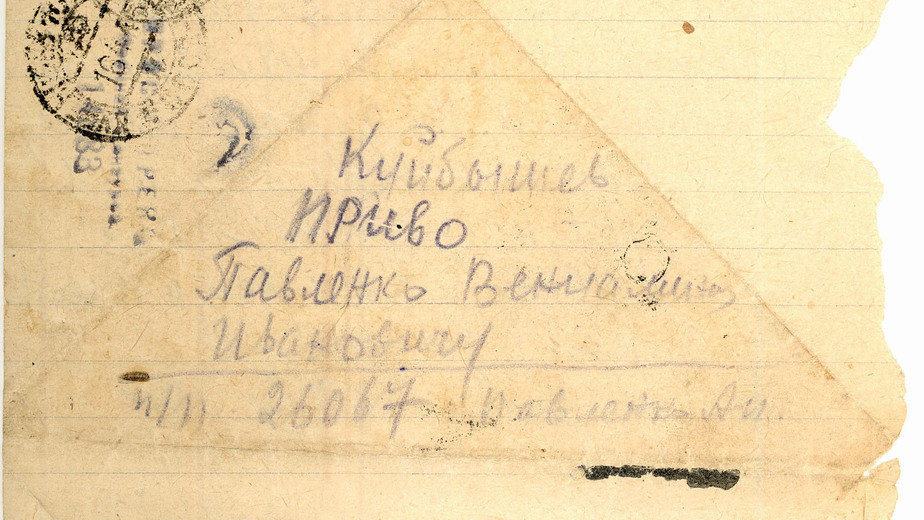 Куйбышев
ПриВО
Павленко Вениамину
Ивановичу
п/п 26067 Павленко А.И.